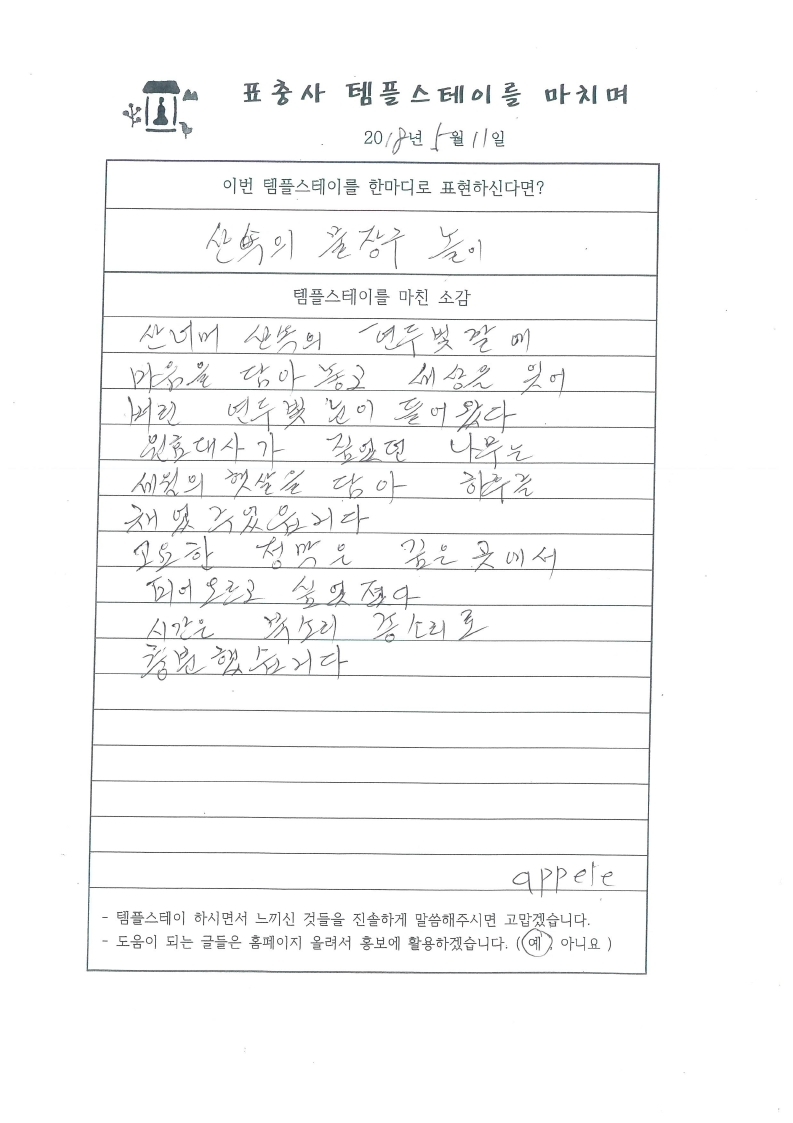 표충사 템플스테이를 마치며
2018년 5월 11일
이번 템플스테이를 한마디로 표현하신다면?
산속의 물장구 놀이
템플스테이를 마친 소감
산너머 산속의 연두빛깔에
마음을 담아놓고 세상을 잊어
버린 연두빛 눈이 들어왔다
원효대사가 짚었던 나무는
세월의 햇살을 담아 하루를
채웠
고요한 정막은 깊은 곳에서
피어오르고
시간은 목소리 종소리로
appele
- 템플스테이 하시면서 느끼신 것들을 진솔하게 말씀해주시면 고맙겠습니다.
- 도움이 되는 글들은 홈페이지 올려서 홍보에 활용하겠습니다. ( 예 , 아니요 )